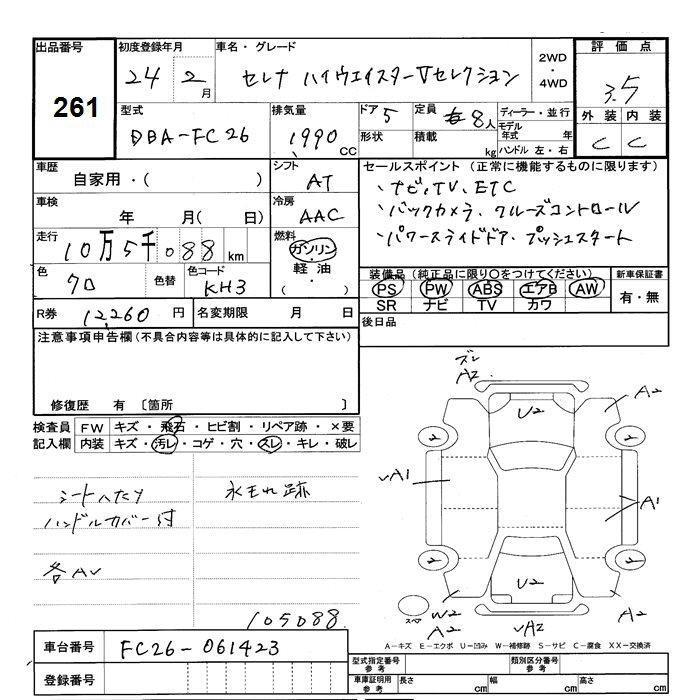 出品番号 初度登録年月 車名・グレード 評価点
261
24 2月 セレナ ハイウェイスターVセレクション 2WD・4WD 3.5
型式 排気量 ドア 5 定員 8人 ディーラー・並行 外装 内装
DBA-FC26 1990CC 形状 積載 kg モデル年式 年 C C
ハンドル 左・右
車歴 シフト セールスポイント (正常に機能するものに限ります)
自家用・( ) AT ・ナビ、TV、ETC
車検 冷房 ・バックカメラ、クルーズコントロール
年 月( 日) AAC ・パワースライドドア、プッシュスタート
走行 燃料
10万5千088km ガソリン
軽油
・( )
色 クロ 色替 色コード KH3
装備品 (純正品に限り○をつけてください) 新車保証書
PS PW ABS エアB AW 有・無
SR ナビ TV カワ
R券 12,260円 名変期限 月 日 後日品
注意事項申告欄(不具合内容等は具体的に記入して下さい)
修復歴 有 〔箇所 〕
検査員 FW キズ・飛石・ヒビ割・リペア跡・×要
記入欄 内装 キズ・汚レ・コゲ・穴・スレ・キレ・破レ
シートヘタリ 水モレ跡
ハンドルカバー付
各AU
105088
ズレ
A2
U2
A2
2
2
A1
A1
2
2
U2
W2
A2
A2
A2
A-キズ E-エクボ U-凹み W-補修跡 S-サビ C-腐食 XX-交換済
車台番号 FC26-061423
登録番号
型式指定番号 参考 類別区分番号 参考
車庫証明用 参考 長さ cm 幅 cm 高さ cm